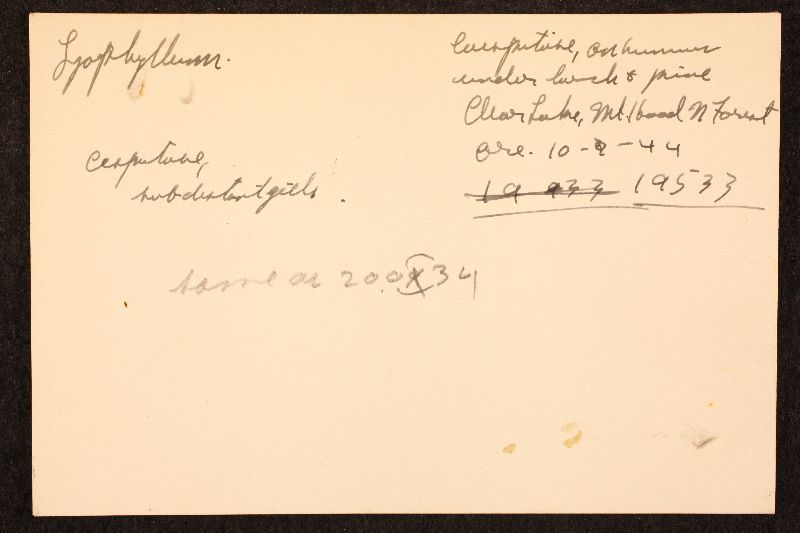 Lyophyllum.
Caespitose, on humus
under larch & pine
Clear Lake, Mt. Hood N Forest
Ore. 10-9-44
19 933 19533
cespitose,
subdistant gills.
same as 200X34